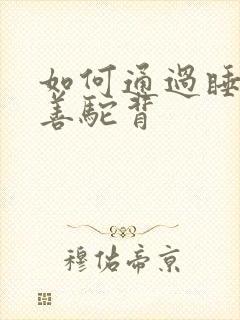 如何通過睡
善駝背
穆佑帝京